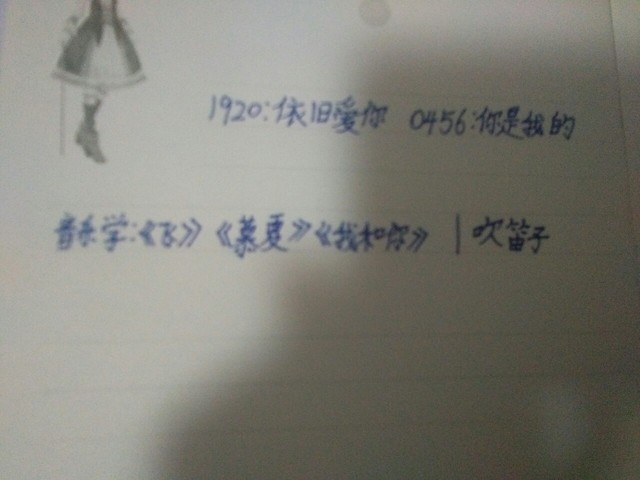 1920:依旧爱你 0456:你是我的
音乐学:《飞》《慕夏》《我和你》 | 吹笛子